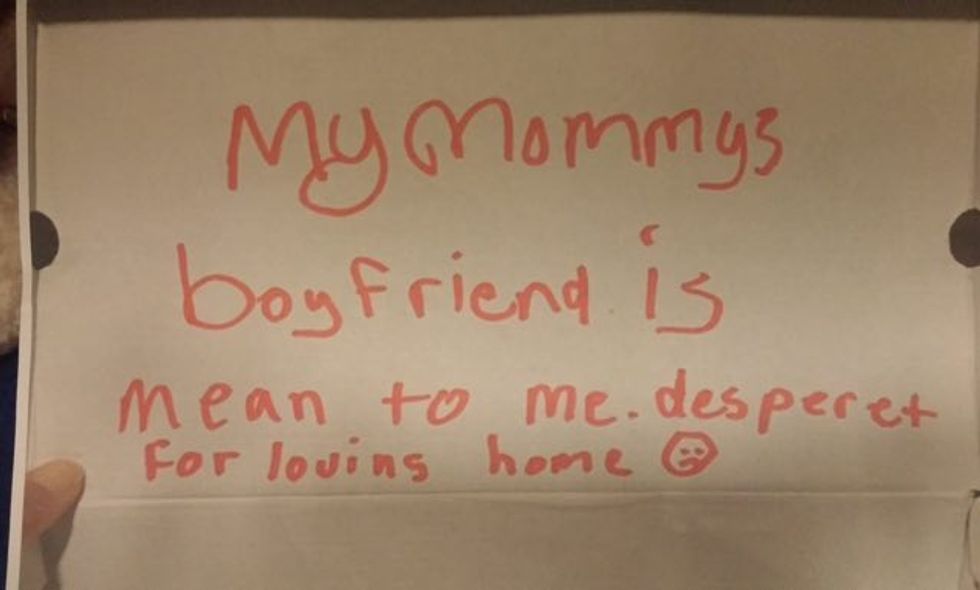 My Mommys
boyfriend is
mean to me. desperet
for loving home